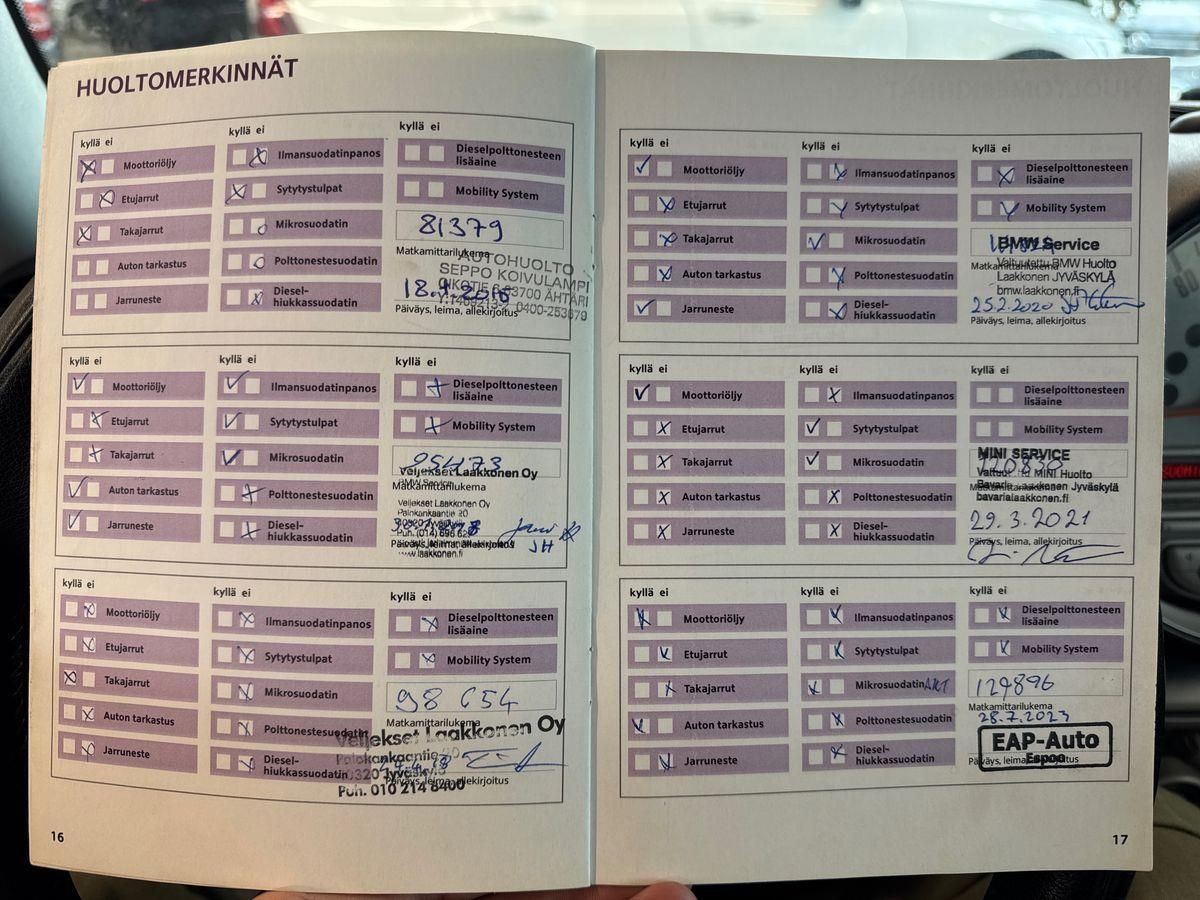 HUOLTOMERKINNÄT
kyllä ei
kyllä ei
kyllä ei
Moottoriöljy
Ilmansuodatinpanos
Dieselpolttonesteen
lisäaine
Etujarrut
Sytytystulpat
Mobility System
Takajarrut
Mikrosuodatin
81379
Matkamittarilukema
Auton tarkastus
Polttonestesuodatin
AUTOHUOLTO
SEPPO KOIVULAMPI
63700 ÄHTÄRI
0400-253679
Jarruneste
Diesel-
hiukkassuodatin
Päiväys, leima, allekirjoitus
kyllä ei
kyllä ei
kyllä ei
Moottoriöljy
Ilmansuodatinpanos
Dieselpolttonesteen
lisäaine
Etujarrut
Sytytystulpat
Mobility System
Takajarrut
Mikrosuodatin
95473
Veljekset Laakkonen Oy
BMW Service
Matkamittarilukema
Auton tarkastus
Polttonestesuodatin
Veljekset Laakkonen Oy
Palokankaantie 20
Jarruneste
Diesel-
hiukkassuodatin
Päiväys, leima, allekirjoitus
JH
www.laakkonen.fi
kyllä ei
kyllä ei
kyllä ei
Moottoriöljy
Ilmansuodatinpanos
Dieselpolttonesteen
lisäaine
Etujarrut
Sytytystulpat
Mobility System
Takajarrut
Mikrosuodatin
98 654
Matkamittarilukema
Auton tarkastus
Polttonestesuodatin
Veljekset Laakkonen Oy
Palokankaantie 20
Jarruneste
Diesel-
hiukkassuodatin
40320 Jyväskylä
Päiväys, leima, allekirjoitus
Puh. 010 214 8400
16
kyllä ei
kyllä ei
kyllä ei
Moottoriöljy
Ilmansuodatinpanos
Dieselpolttonesteen
lisäaine
Etujarrut
Sytytystulpat
Mobility System
Takajarrut
Mikrosuodatin
BMW Service
Valtuutettu BMW Huolto
Matkamittarilukema
Auton tarkastus
Polttonestesuodatin
Laakkonen JYVÄSKYLÄ
bmw.laakkonen.fi
Jarruneste
Diesel-
hiukkassuodatin
25.2.2020
Päiväys, leima, allekirjoitus
kyllä ei
kyllä ei
kyllä ei
Moottoriöljy
Ilmansuodatinpanos
Dieselpolttonesteen
lisäaine
Etujarrut
Sytytystulpat
Mobility System
Takajarrut
Mikrosuodatin
MINI SERVICE
MINI Huolto
Jyväskylä
Auton tarkastus
Polttonestesuodatin
bavarialaakkonen.fi
Jarruneste
Diesel-
hiukkassuodatin
29.3.2021
Päiväys, leima, allekirjoitus
kyllä ei
kyllä ei
kyllä ei
Moottoriöljy
Ilmansuodatinpanos
Dieselpolttonesteen
lisäaine
Etujarrut
Sytytystulpat
Mobility System
Takajarrut
Mikrosuodatin
124896
Matkamittarilukema
28.7.2023
Auton tarkastus
Polttonestesuodatin
EAP-Auto
Espoo
Jarruneste
Diesel-
hiukkassuodatin
Päiväys, leima, allekirjoitus
17